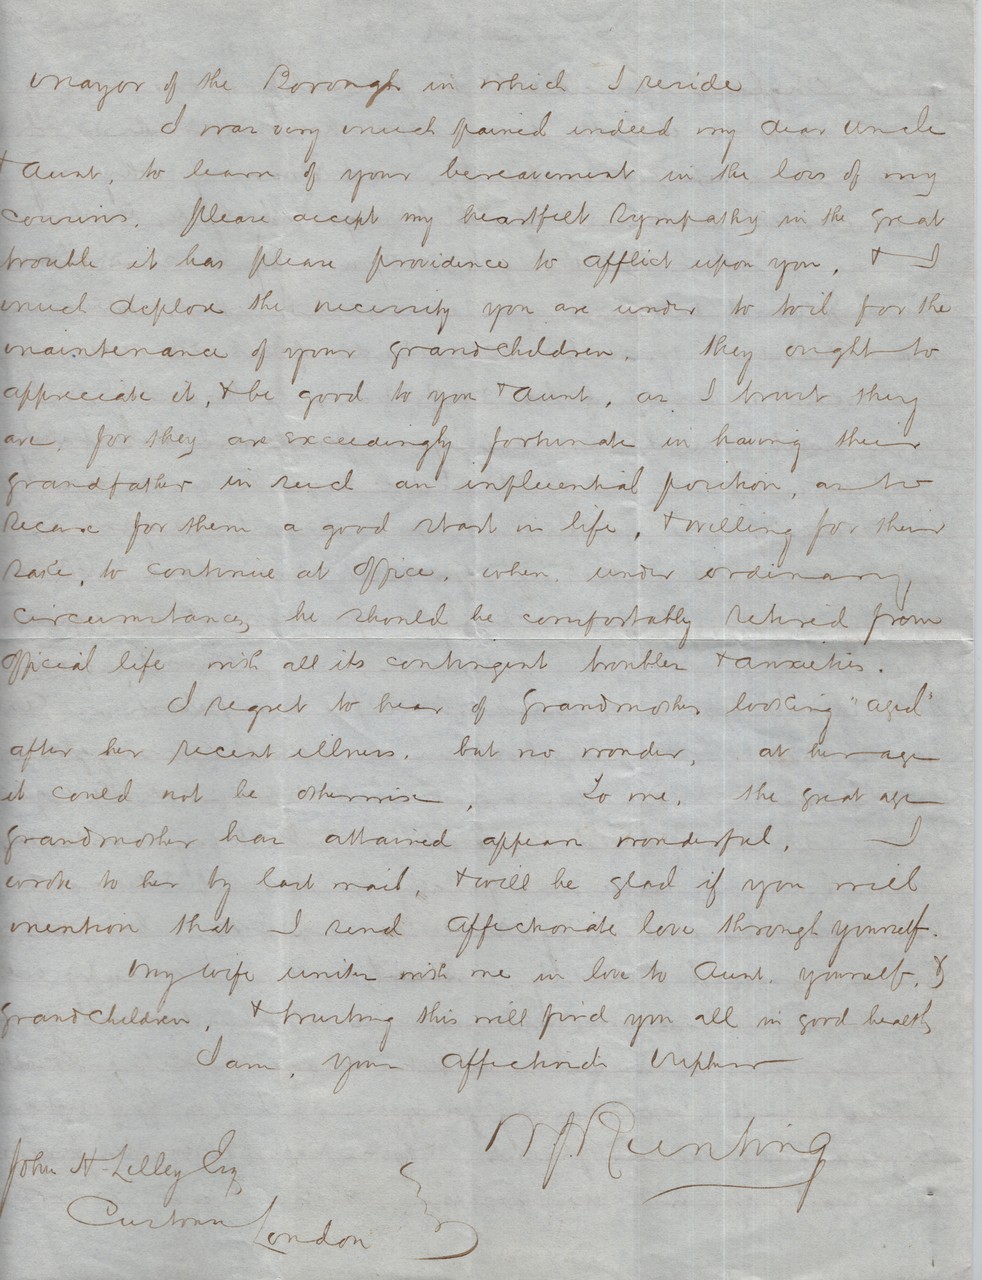 Mayor of the Borough in which I reside
I was very much pained indeed my dear Uncle
& Aunt, to learn of your bereavement in the loss of my
cousins. Please accept my heartfelt sympathy in the great
trouble it has please providence to afflict upon you, & I
much deplore the necessity you are under to toil for the
maintenance of your grandchildren. They ought to
appreciate it, & be good to you & Aunt, as I trust they
are, for they are exceedingly fortunate in having their
grandfather in such an influential position, as to
secure for them a good start in life, & willing for their
sake, to continue at office, when, under ordinary,
circumstances he should be comfortably retired from
official life with all its contingent troubles & anxieties.
I regret to hear of Grandmother looking "aged"
after her recent illness, but no wonder, at her age
it could not be otherwise, To me, the great age
Grandmother has attained appears wonderful. I
wrote to her by last mail, & will be glad if you will
mention that I send affectionate love through yourself.
My wife unites with me in love to Aunt, yourself, &
Grandchildren, & trusting this will find you all in good health,
I am, your affectionate Nephew
W J. Bunting
John H Lilley Esq
Customs London